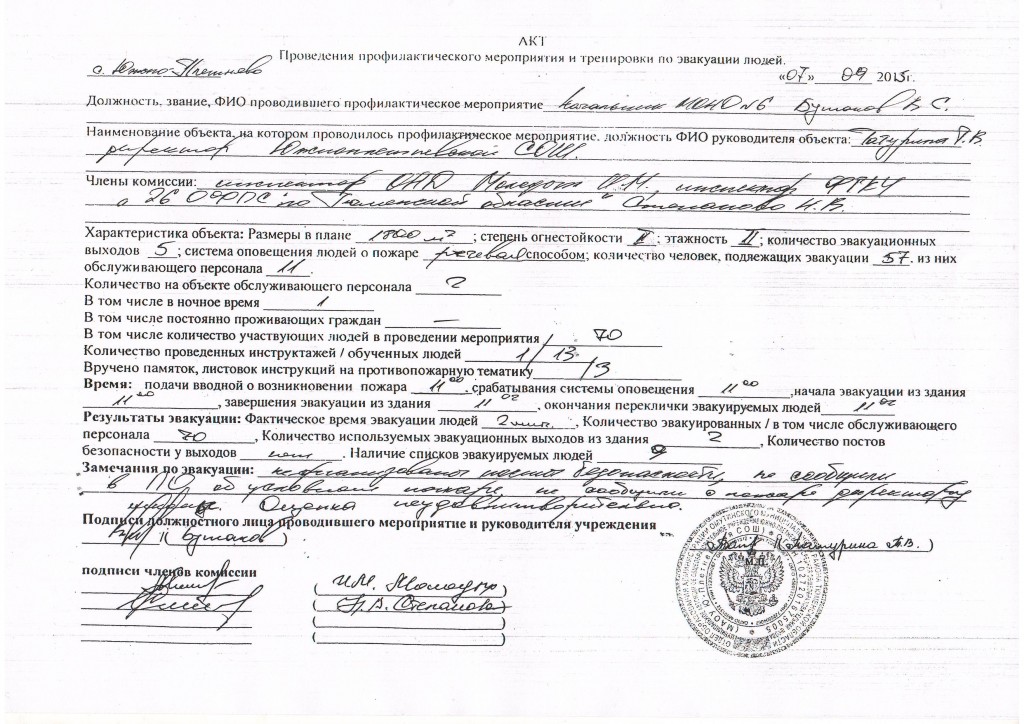 АКТ
Проведения профилактического мероприятия и тренировки по эвакуации людей.
с. Южно-Плетнево «07» 09 2013г.
Должность, звание, ФИО проводившего профилактическое мероприятие начальник МОНО №6 Бушаков В С.
Наименование объекта, на котором проводилось профилактическое мероприятие, должность ФИО руководителя объекта: Т.В.
директор Южноплетневской СОШ.
Члены комиссии: инспектор ОНД И.М., инспектор ФГКУ
« 26 ОФПС по Тюменской области» Степанова Н.В.
Характеристика объекта: Размеры в плане 1800 м²; степень огнестойкости II; этажность II; количество эвакуационных
выходов 5; система оповещения людей о пожаре речевая способом; количество человек, подлежащих эвакуации 57. из них
обслуживающего персонала 11.
Количество на объекте обслуживающего персонала 2
В том числе в ночное время 1
В том числе постоянно проживающих граждан —
В том числе количество участвующих людей в проведении мероприятия / 70
Количество проведенных инструктажей / обученных людей 1 / 13
Вручено памяток, листовок инструкций на противопожарную тематику /3
Время: подачи вводной о возникновении пожара 11 00, срабатывания системы оповещения 11 00,начала эвакуации из здания
11 00, завершения эвакуации из здания 11 02, окончания переклички эвакуируемых людей 11 02
Результаты эвакуации: Фактическое время эвакуации людей 2 мин., Количество эвакуированных / в том числе обслуживающего
персонала 70, Количество используемых эвакуационных выходов из здания 2, Количество постов
безопасности у выходов нет. Наличие списков эвакуируемых людей
Замечания по эвакуации: не организованы посты безопасности, не сообщили
в ПО об условном пожаре, не сообщили о пожаре директору
Оценка неудовлетворительно.
Подписи должностного лица проводившего мероприятие и руководителя учреждения
( Бушаков ) ( Т.В. )
М.П.
подписи членов комиссии
( И.М. )
( Н.В. Степанова )
( )
( )